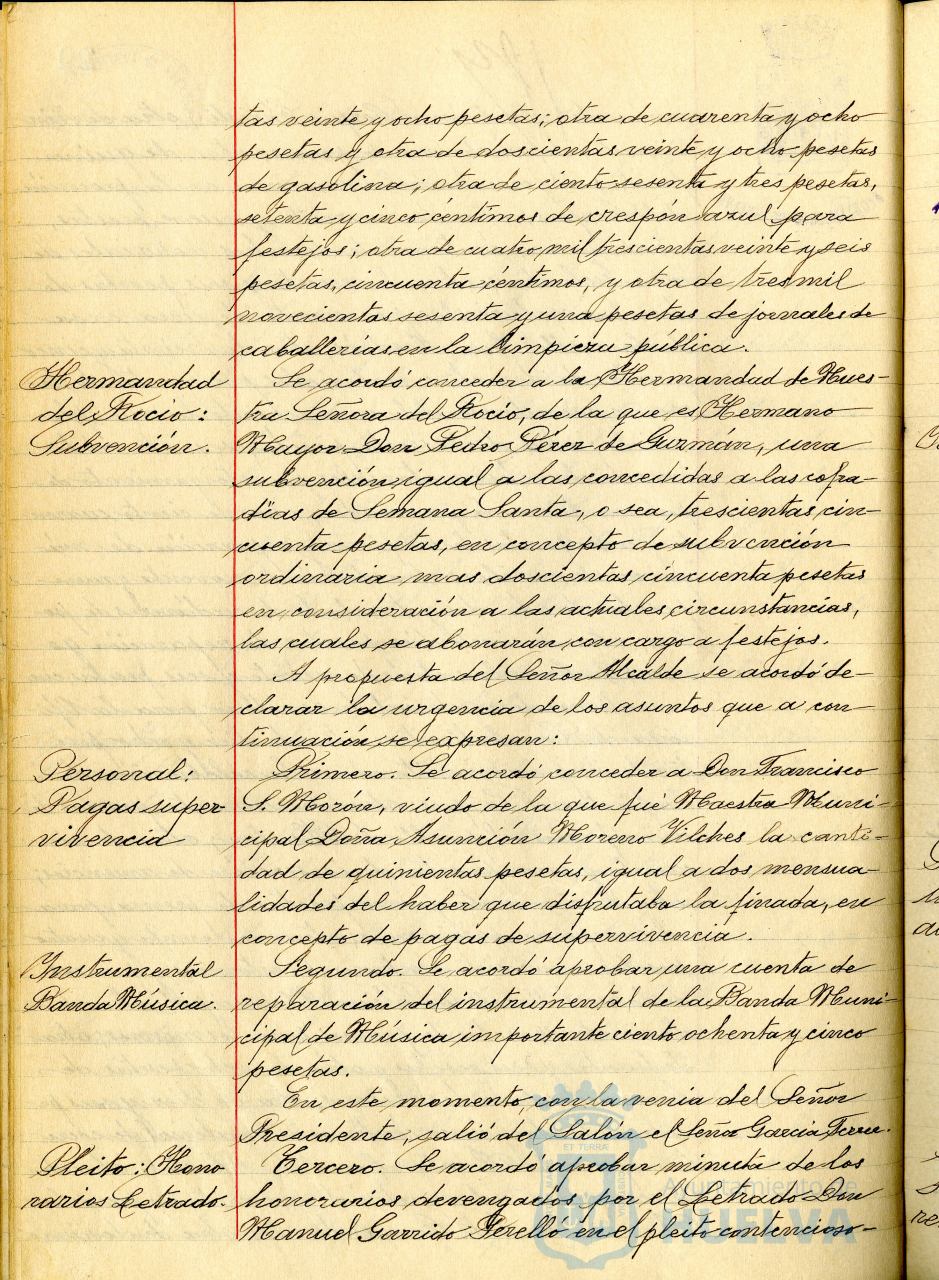 tas veinte y ocho pesetas; otra de cuarenta y ocho
pesetas y otra de doscientas veinte y ocho pesetas
de gasolina; otra de ciento sesenta y tres pesetas,
setenta y cinco céntimos de crespón azul para
festejos; otra de cuatro mil trescientas veinte y seis
pesetas, cincuenta céntimos, y otra de tres mil
novecientas sesenta y una pesetas de jornales de
caballerías en la limpieza pública.
Hermandad
del Rocio:
Subvención.
Se acordó conceder a la Hermandad de Nues-
tra Señora del Rocio, de la que es Hermano
Mayor Don Pedro Pérez de Guzmán, una
subvención igual a las concedidas a las cofra-
días de Semana Santa, o sea, trescientas cin-
cuenta pesetas, en concepto de subvención
ordinaria mas doscientas cincuenta pesetas
en consideración a las actuales circunstancias,
las cuales se abonarán con cargo a festejos.
A propuesta del Señor Alcalde se acordó de-
clarar la urgencia de los asuntos que a con-
tinuación se expresan:
Personal:
Pagas super-
vivencia
Primero. Se acordó conceder a Don Francisco
S. Morón, viudo de la que fué Maestra Muni-
cipal Doña Asunción Moreno Vilches la canti-
dad de quinientas pesetas, igual a dos mensua-
lidades del haber que disfrutaba la finada, en
concepto de pagas de supervivencia.
Instrumental
Banda Música.
Segundo. Se acordó aprobar una cuenta de
reparación del instrumental de la Banda Muni-
cipal de Música importante ciento ochenta y cinco
pesetas.
En este momento, con la venia del Señor
Presidente, salió del Salón el Señor García
Pleito: Hono
rarios Letrado.
Tercero. Se acordó aprobar minuta de los
honorarios devengados por el Letrado Don
Manuel Garrido Perelló en el pleito contencioso-
Ayuntamiento de
HUELVA